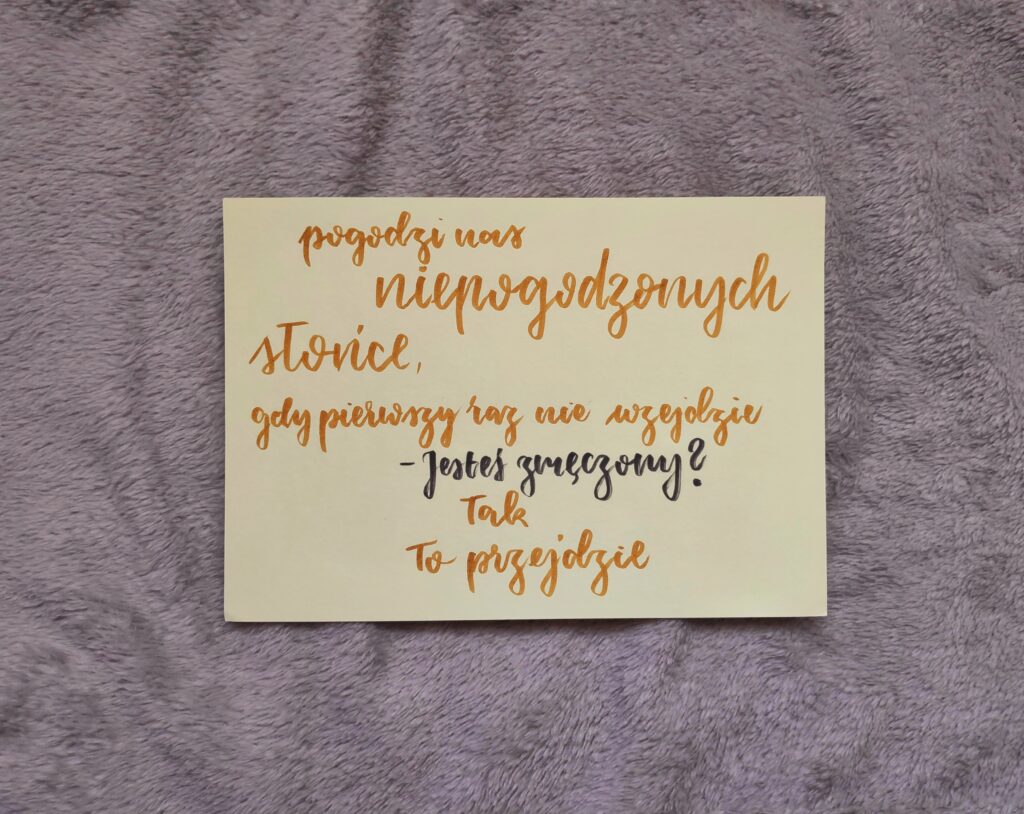 pogodzi nas
niepogodzonych
słońce,
gdy pierwszy raz nie wzejdzie
- Jesteś zmęczony?
Tak
To przejdzie